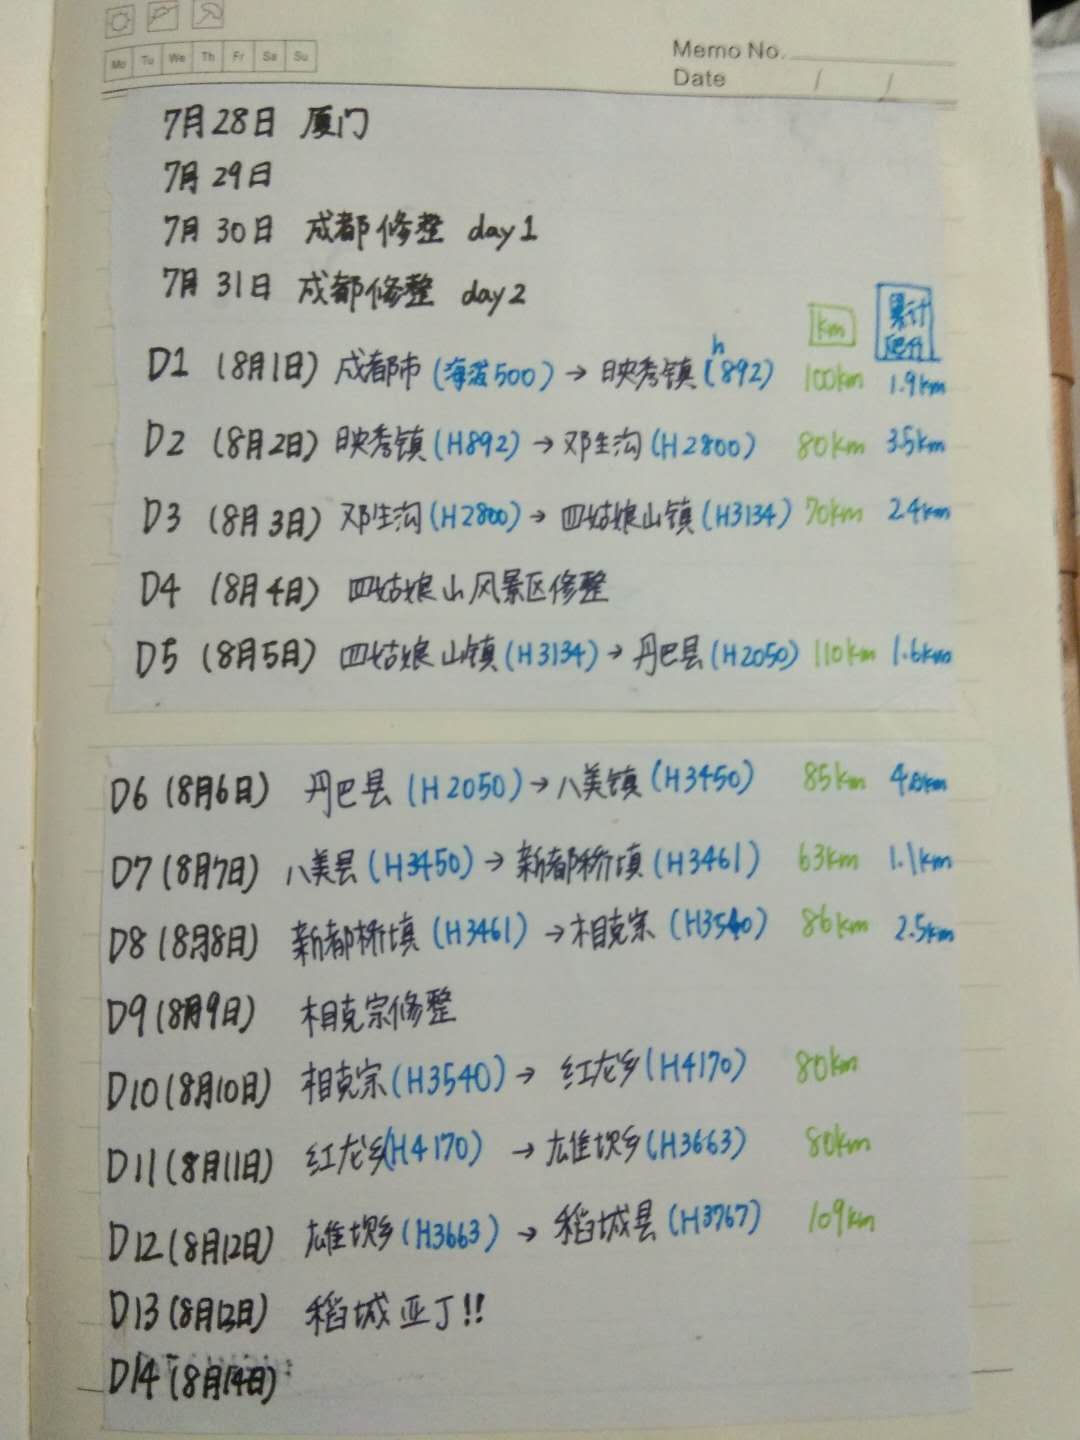 Mo Tu We Th Fr Sa Su
Memo No.
Date / /
7月28日 厦门
7月29日
7月30日 成都修整 day1
7月31日 成都修整 day2
km 累计爬升
D1 (8月1日) 成都市 (海波500) → 映秀镇 (h892) 100km 1.9km
D2 (8月2日) 映秀镇 (H892) → 邓生沟 (H2800) 80km 3.5km
D3 (8月3日) 邓生沟 (H2800) → 四姑娘山镇 (H3134) 70km 2.4km
D4 (8月4日) 四姑娘山风景区修整
D5 (8月5日) 四姑娘山镇 (H3134) → 丹巴县 (H2050) 110km 1.6km
D6 (8月6日) 丹巴县 (H2050) → 八美镇 (H3450) 85km
D7 (8月7日) 八美县 (H3450) → 新都桥镇 (H3461) 63km 1.1km
D8 (8月8日) 新都桥镇 (H3461) → 相克宗 (H3540) 86km 2.5km
D9 (8月9日) 相克宗修整
D10 (8月10日) 相克宗 (H3540) → 红龙乡 (H4170) 80km
D11 (8月11日) 红龙乡 (H4170) → 雄坝乡 (H3663) 80km
D12 (8月12日) 雄坝乡 (H3663) → 稻城县 (H3767) 109km
D13 (8月13日) 稻城亚丁!!
D14 (8月14日)